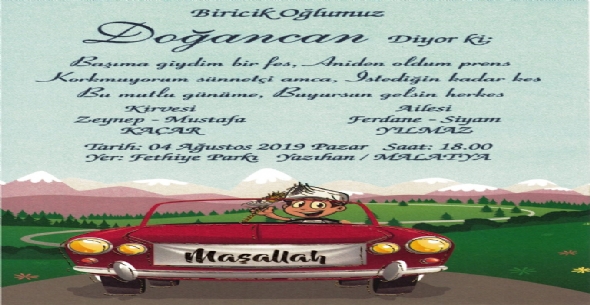 Biricik Oğlumuz
Doğancan Diyor ki;
Başıma giydim bir fes, Aniden oldum prens
Korkmuyorum sünnetçi amca, İstediğin kadar kes
Bu mutlu günüme, Buyursun gelsin herkes
Kirvesi
Zeynep - Mustafa
KAÇAR
Ailesi
Ferdane - Siyam
YILMAZ
Tarih: 04 Ağustos 2019 Pazar Saat: 18.00
Yer: Fethiye Parkı Yazıhan / MALATYA
Maşallah